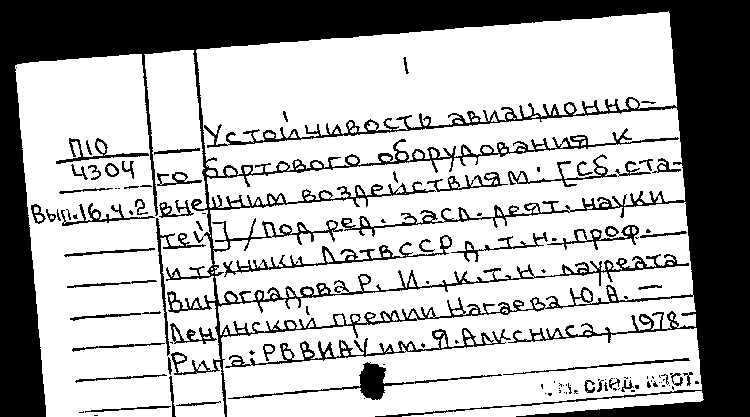 1
Устойчивость авиационно-
П10
4304
го бортового оборудования к
Вып.16,ч.2
внешним воздействиям: [Сб.ста-
тей] /Под ред. засл. деят. науки
и техники ЛатвССР д.т.н., проф.
Виноградова Р. И., к.т.н. лауреата
Ленинской премии Нагаева Ю.А. —
Рига: РВВИАУ им. Я.Алксниса, 1978-
См. след. карт.